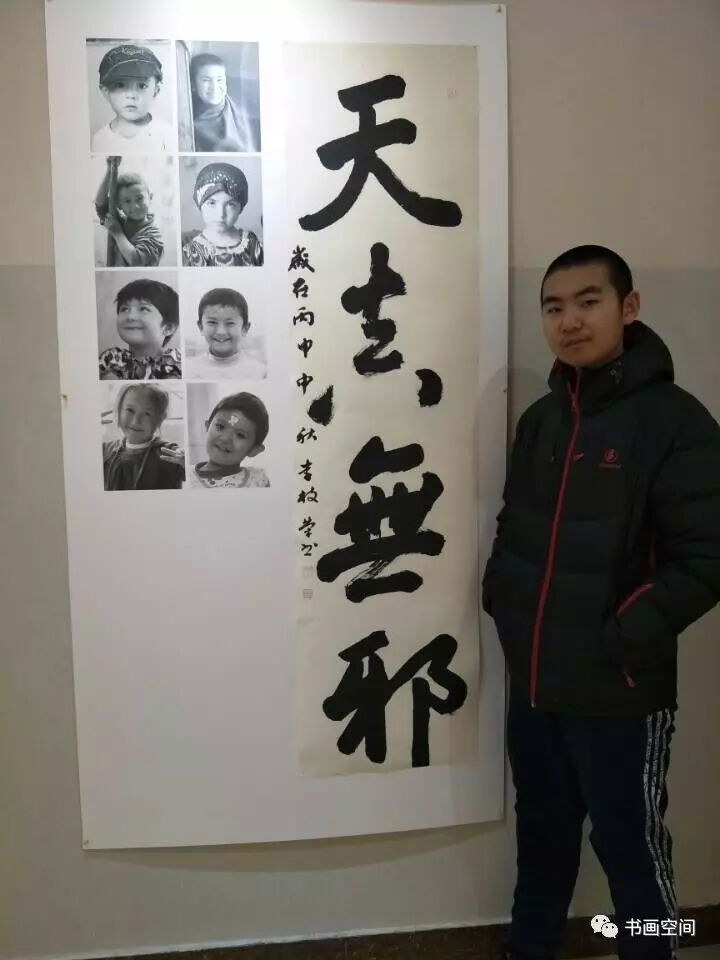 天真無邪
歲在丙申中秋 李
书画空间